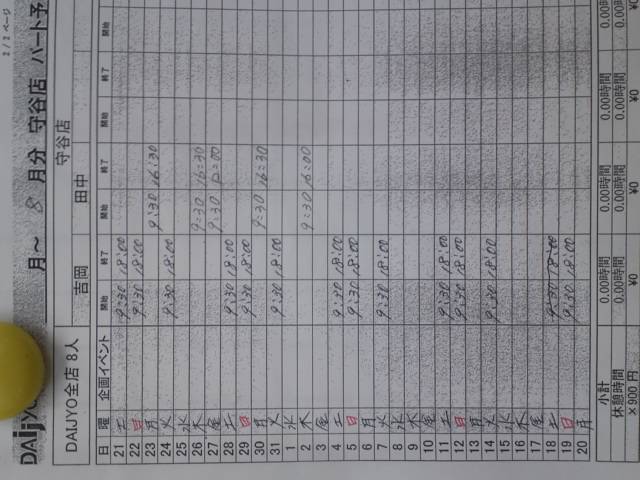 2 / 2 ページ
DAIjyo 月～ 8 月分 守谷店 パート予
DAIJYO全店 8人 守谷店
吉岡 田中
日 曜 企画イベント 開始 終了 開始 終了 開始 終了 開始
21 土 9:30 18:00
22 日 9:30 18:00
23 月 9:30 16:30
24 火 9:30 18:00
25 水
26 木 9:30 16:30
27 金 9:30
28 土 9:30 18:00
29 日 9:30 18:00
30 月 9:30 16:30
31 火 9:30 18:00
1 水
2 木 9:30 16:00
3 金
4 土 9:30 18:00
5 日 9:30 18:00
6 月
7 火 9:30 18:00
8 水
9 木
10 金
11 土 9:30 18:00
12 日 9:30 18:00
13 月
14 火 9:30 18:00
15 水
16 木
17 金
18 土 9:30 18:00
19 日 9:30 18:00
20 月
小計 0.00時間 0.00時間 0.00時間 0.00時
休憩時間 0.00時間 0.00時間 0.00時間 0.00時
×900 円 ¥0 ¥0 ¥0